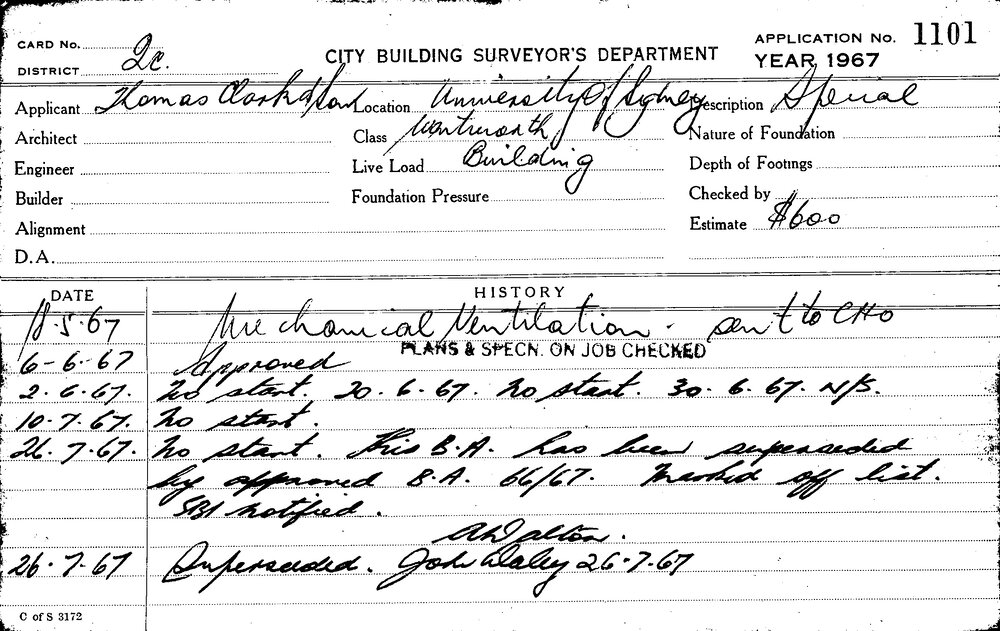 CARD No. 2c. CITY BUILDING SURVEYOR'S DEPARTMENT APPLICATION No. 1101
DISTRICT YEAR 1967
Applicant Thomas Clark & Son Location University Of Sydney Description Special
Architect Class Wentworth Nature of Foundation
Engineer Live Load Building Depth of Footings
Builder Foundation Pressure Checked by
Alignment Estimate $600
D.A.
DATE HISTORY
18.5.67 Mechanical Ventilation - sent to CHO
PLANS & SPECN. ON JOB CHECKED
6-6-67 Approved
2.6.67. No start. 20.6.67. No start. 30.6.67. N/S.
10.7.67. No start.
26.7.67. No start. This B.A. has been superseded
by approved B.A. 66/67. Marked off list.
SBI notified.
26.7.67 Superseded. John Daley 26.7.67
C of S 3172